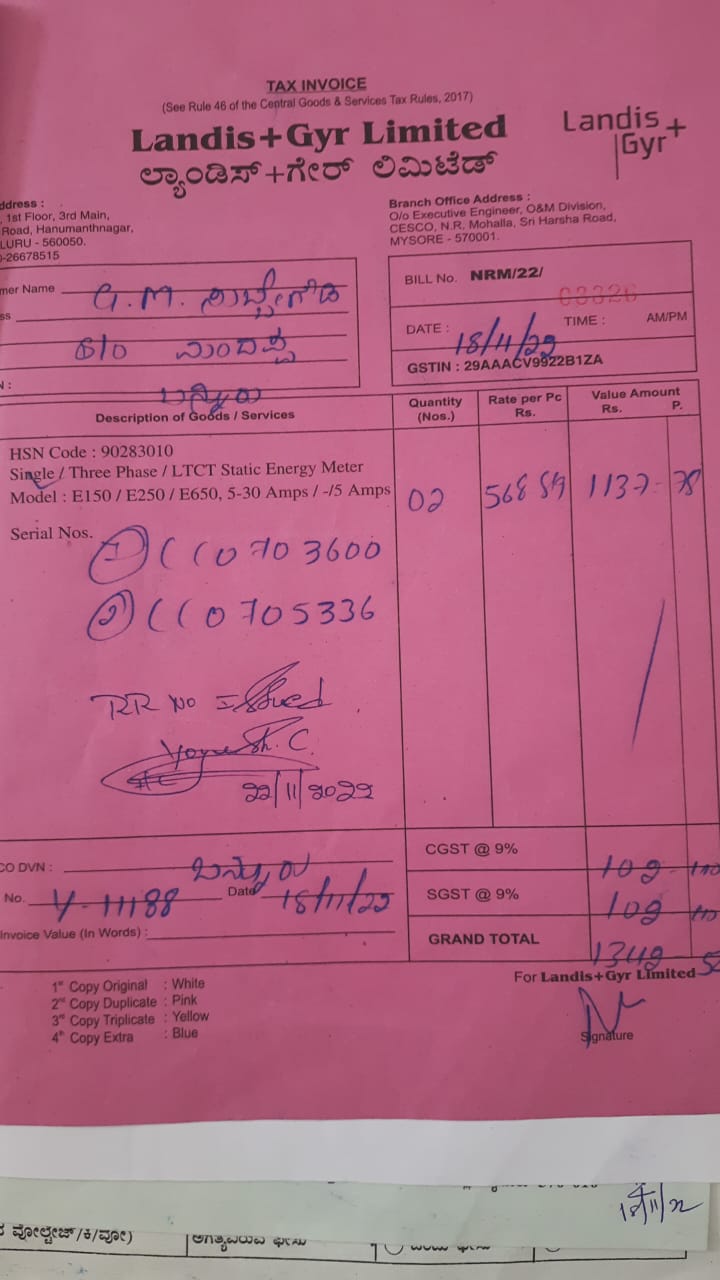 TAX INVOICE
(See Rule 46 of the Central Goods & Services Tax Rules, 2017)
Landis+Gyr Limited
ಲ್ಯಾಂಡಿಸ್+ಗೇರ್ ಲಿಮಿಟೆಡ್
Landis+
Gyr
ddress :
, 1st Floor, 3rd Main,
Road, Hanumanthnagar,
LURU - 560050.
-26678515
Branch Office Address :
O/o Executive Engineer, O&M Division,
CESCO, N.R, Mohalla, Sri Harsha Road,
MYSORE - 570001.
mer Name G.M.
ss
S/o
N :
BILL No. NRM/22/
03326
DATE : 18/11/22 TIME : AM/PM
GSTIN : 29AAACV9922B1ZA
Description of Goods / Services
Quantity (Nos.)
Rate per Pc Rs.
Value Amount Rs. P.
HSN Code : 90283010
Single / Three Phase / LTCT Static Energy Meter
Model : E150 / E250 / E650, 5-30 Amps / -/5 Amps
02 568 89 1137-78
Serial Nos.
① CC0703600
② CC0705336
RR No Issued
22/11/2022
CO DVN : ಬನ್ನೂರು
No. Y-11188 Date 18/11/22
Invoice Value (In Words) :
CGST @ 9% 102-
SGST @ 9% 102-
GRAND TOTAL 1342-
1st Copy Original : White
2nd Copy Duplicate : Pink
3rd Copy Triplicate : Yellow
4th Copy Extra : Blue
For Landis+Gyr Limited
Signature
18/11/22
ವೋಲ್ಟೇಜ್/ಕಿ/ವೋ)